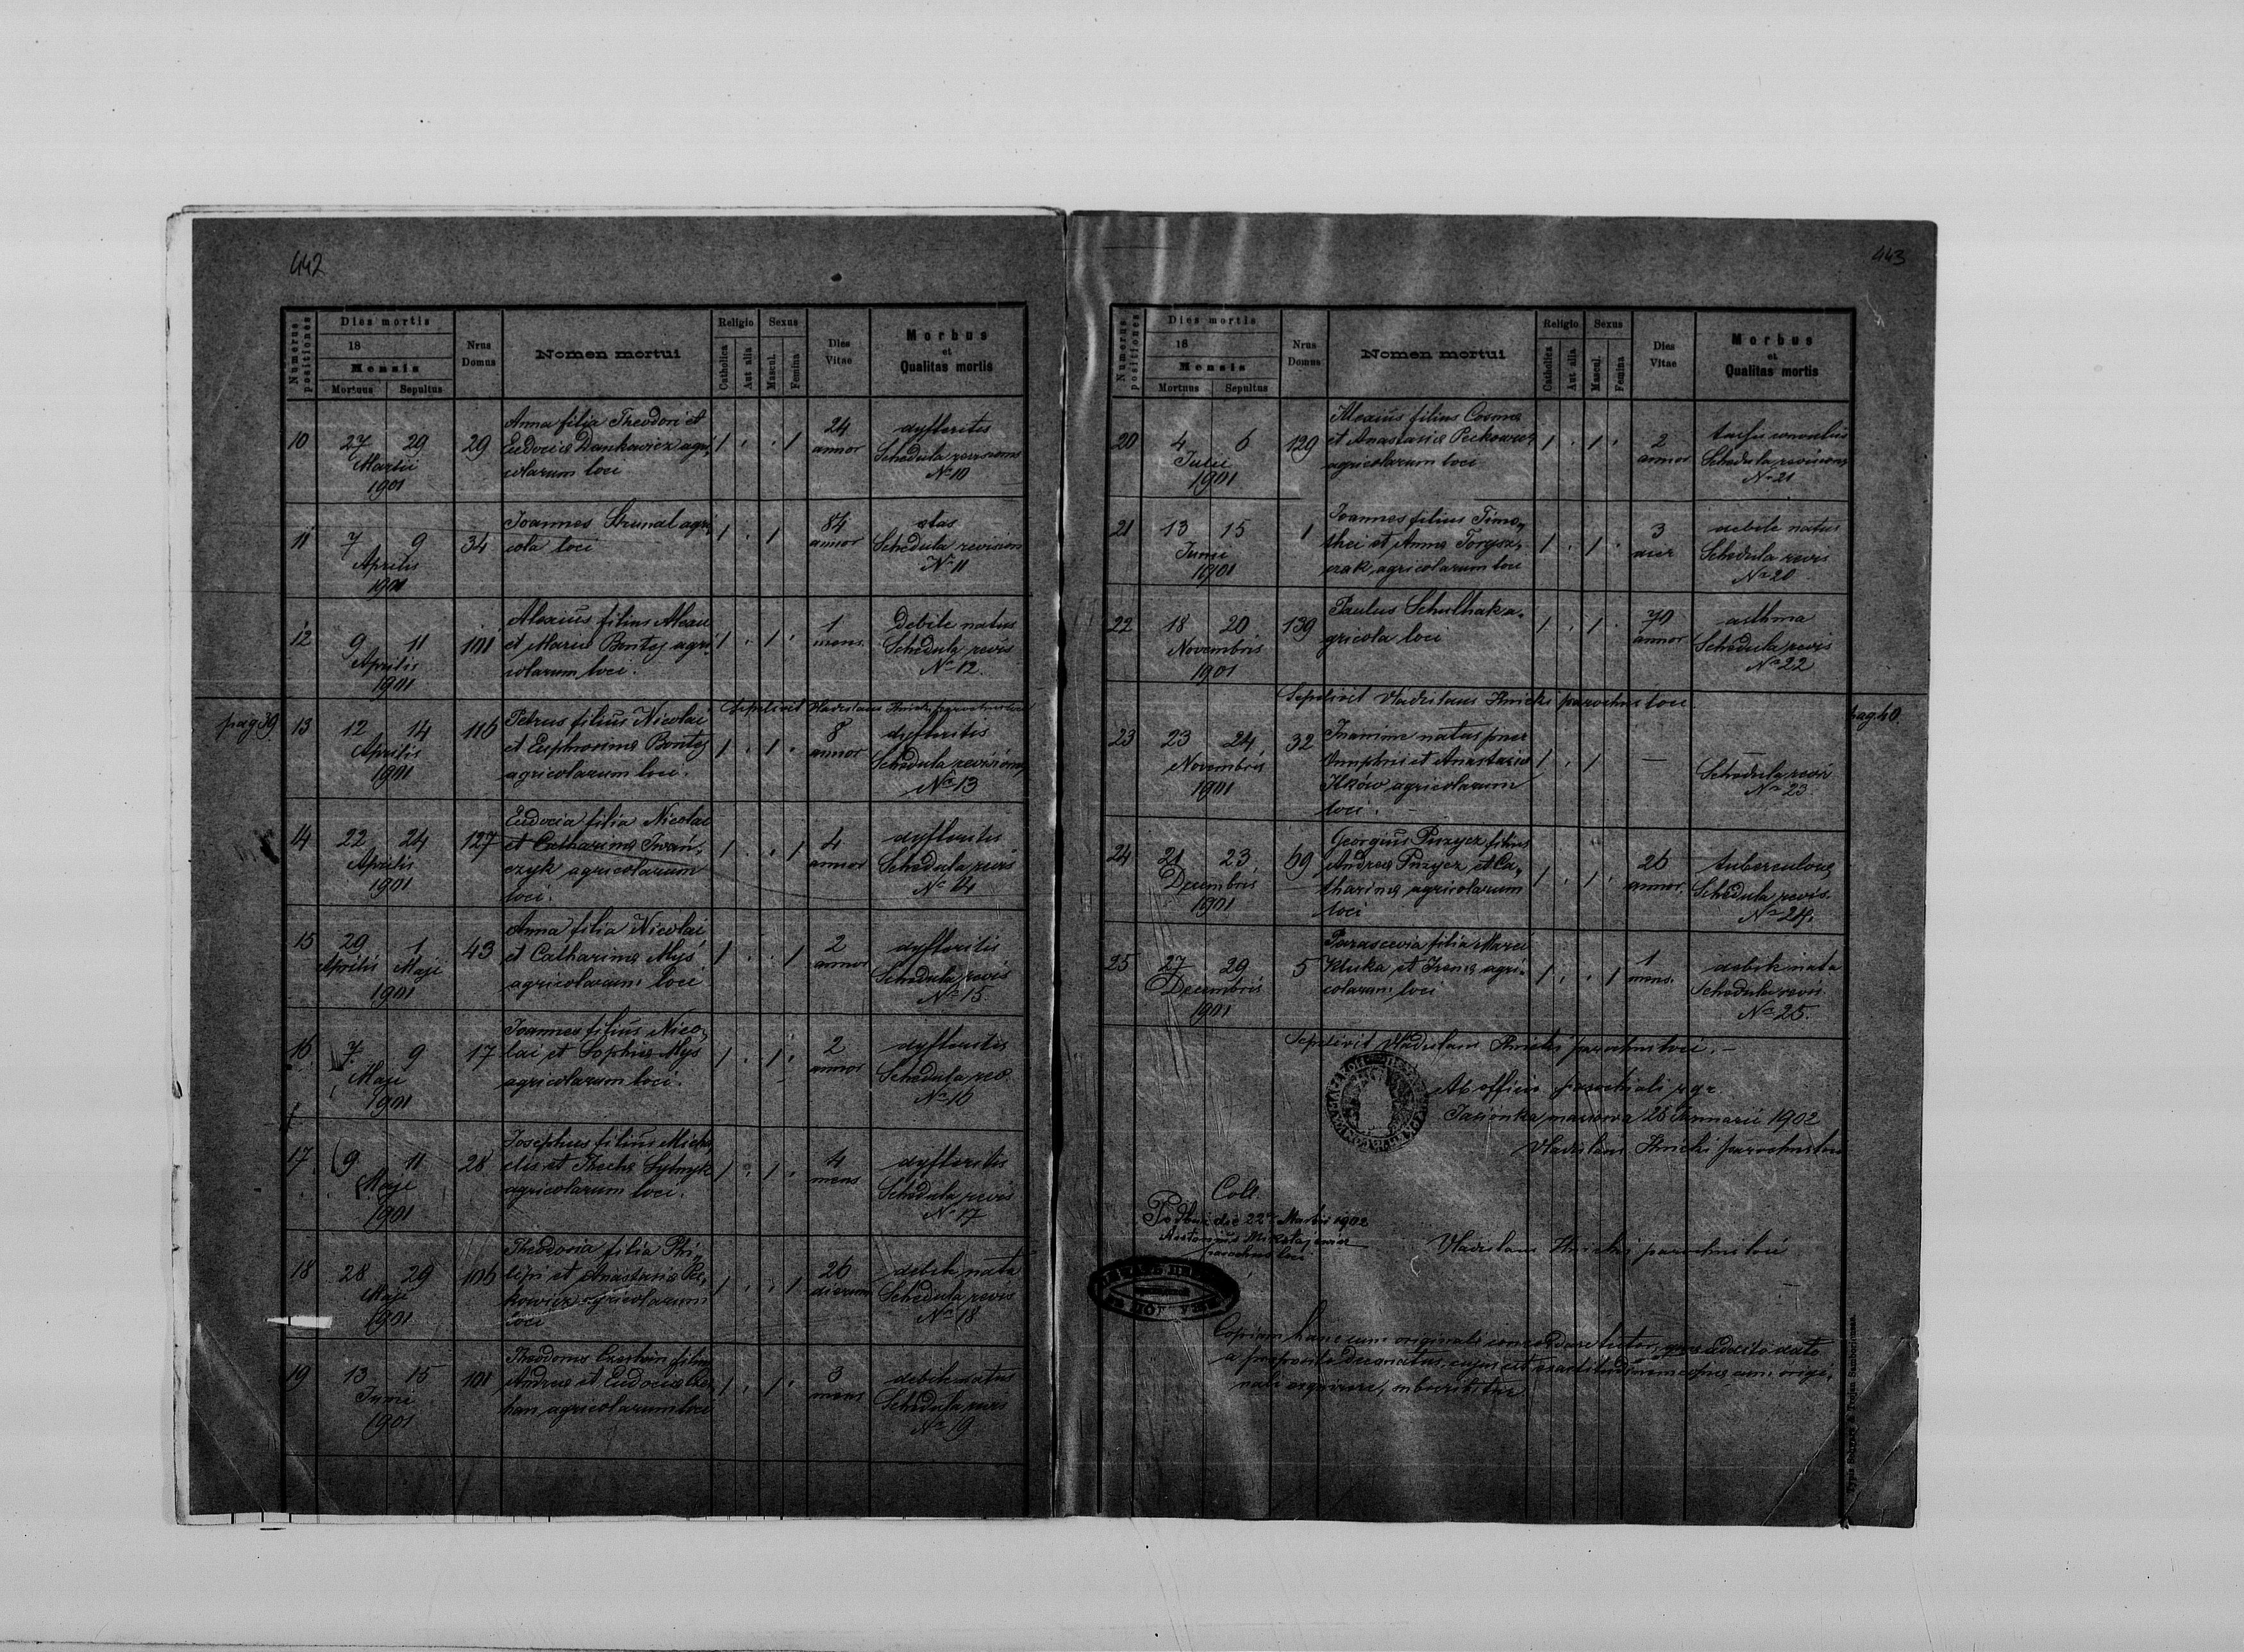 442
Numerus positiones
Dies mortis
18
Mensis
Mortuus Sepultus
Nrus Domus
Nomen mortui
Religio
Catholica
Aut alia
Sexus
Mascul.
Femina
Dies Vitae
Morbus
et
Qualitas mortis
10 27 29 Martii 1901 29
Anna filia Theodori et
Eudociae Dankowicz agri,
colarum loci
1 . . 1 24 annor
dyfteritis
Schedula revisions
No 10
11 7 9 Aprilis 1901 34
Joannes Strunal agri,
cola loci
1 . 1 84 annor
etas
Schedula revision
No 11
12 9 11 Aprilis 1901 101
Alexius filius Alexii
et Mariae Bontej agri,
colarum loci.
1 . 1 . 1 mens.
Debile natus
Schedula revis
No 12.
Sepelivit Vladislaus parochus loci
pag 39.
13 12 14 Aprilis 1901 116
Petrus filius Nicolai
et Euphrosinae Bontej
agricolarum loci.
1 . 1 . 8 annor
dyfteritis
Schedula revisions
No 13
14 22 24 Aprilis 1901 127
Eudocia filia Nicolai
et Catharinae Iwań,
czyk agricolarum
loci.
1 . . 1 4 annor
dyfteritis
Schedula revis
No 14
15 29 Aprilis 1 Maji 1901 43
Anna filia Nicolai
et Catharinae Myś
agricolarum loci
1 . . 1 2 annor
dyfteritis
Schedula revis
No 15
16 7 9 Maji 1901 17
Joannes filius Nico,
lai et Sophiae Myś
agricolarum loci.
1 . 1 . 2 annor
dyfteritis
Schedula rev.
No 16
17 9 11 Maji 1901 28
Josephus filius Micha,
elis et Theclae
agricolarum loci.
1 . 1 . 4 mens
dyfteritis
Schedula revis
No 17
18 28 29 Maji 1901 106
Theodosia filia Phi,
lipi et Anastasiae Pec,
kowicz agricolarum
loci
1 . . 1 26 dierum
debile nata
Schedula revis
No 18
19 13 15 Junii 1901 101
Theodorus filius
Andreae et Eudociae
han agricolarum loci
1 . 1 . 3 mens
debile natus
Schedula revis
No 19
443
Numerus positiones
Dies mortis
18
Mensis
Mortuus Sepultus
Nrus Domus
Nomen mortui
Religio
Catholica
Aut alia
Sexus
Mascul.
Femina
Dies Vitae
Morbus
et
Qualitas mortis
20 4 6 Julii 1901 129
Alexius filius Cosmae
et Anastasiae Peckowicz
agricolarum loci
1 . 1 . 2 annor
Schedula revisions
No 21
21 13 15 Junii 1901 1
Joannes filius Timo,
thei et Annae
agricolarum loci
1 . 1 . 3 dier
debile natus
Schedula revis
No 20
22 18 20 Novembris 1901 139
Paulus Schulhak a,
gricola loci
1 . 1 . 70 annor
asthma
Schedula revis
No 22
Sepelivit Vladislaus parochus loci
pag. 40.
23 23 24 Novembris 1901 32
Inanime natus puer
Onuphrii et Anastasiae
Ilków agricolarum
loci.
1 . 1 —
Schedula revis
No 23
24 21 23 Decembris 1901 69
Georgius Puzycz filius
Andreae Puzycz et Ca,
tharinae agricolarum
loci
1 . 1 . 26 annor.
tuberculous
Schedula revis.
No 24.
25 27 29 Decembris 1901 5
Parascevia filia Marci
Kluka et Irenae agri,
colarum loci
1 . . 1 1 mens.
debile nata
Schedula revis.
No 25.
Sepelivit Vladislaus parochus loci.—
Ab officio parochiali r. g. c.
Jasionka masiowa 26 Januarii 1902
Vladislaus parochus loci
Coll.
Podbuż die 22 Martii 1902
Antonius Mikołajewicz
parochus loci
Vladislaus parochus loci
Copiam hanc cum originali concordare testor,
a praeposito decanatus, cujus est exactitudinem copiae cum origi,
nali inquirere, subscribitur.
Typis Schwarz & Trojan Samboriensis.